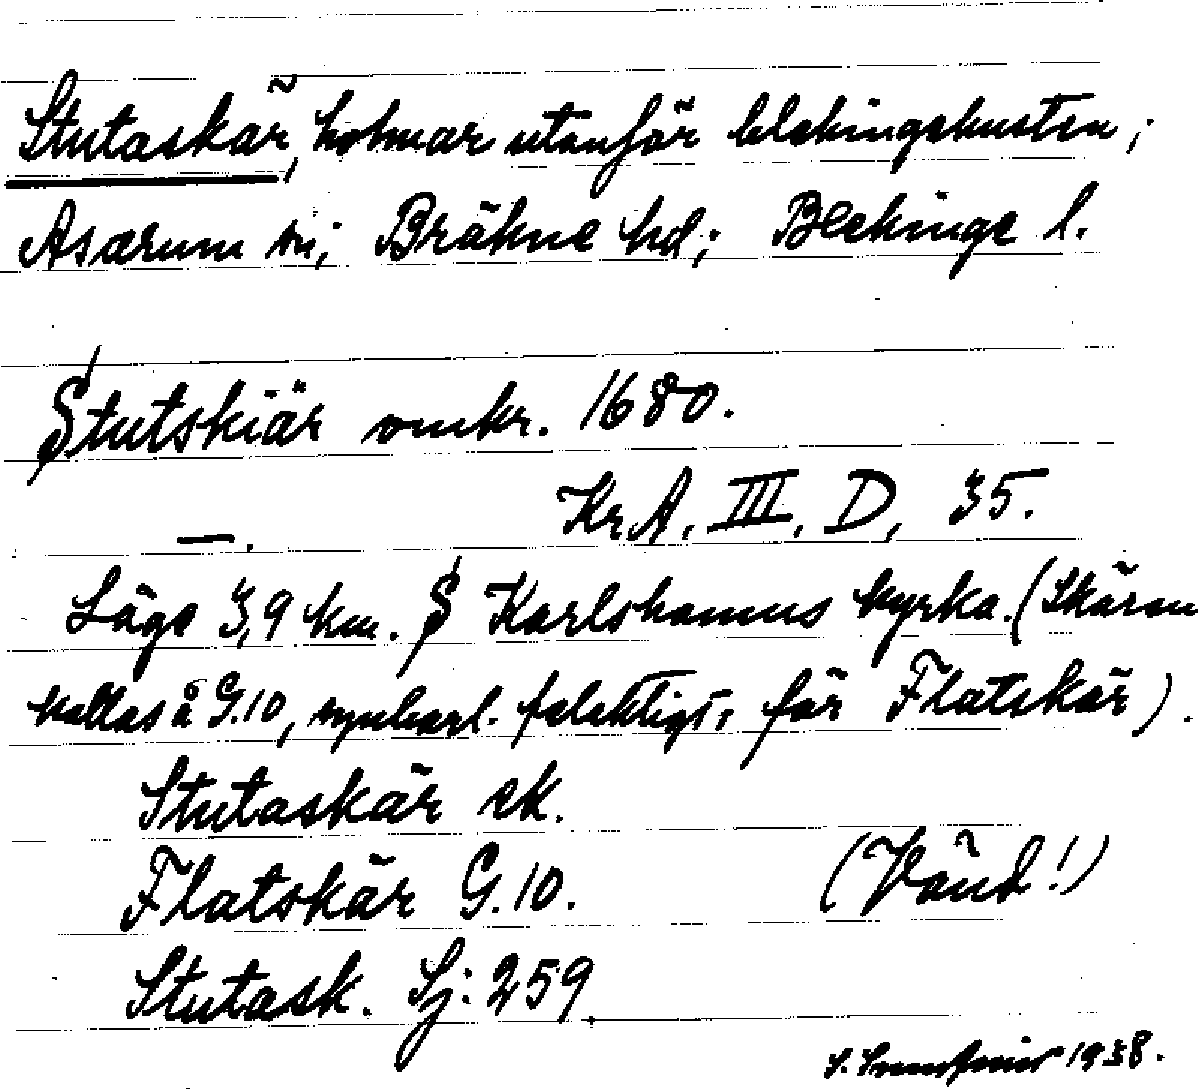 Stutaskär, holmar utanför blekingekusten;
Asarum sn; Bräkne hd; Blekinge l.
Stutskiär omkr. 1680.
Kr.A. III, D, 35.
—.
Läge 3,9 km. S Karlshamns kyrka. (Skären
kallas å G.10, synbarl. felaktigt, för Flatskär).
Stutaskär ek.
Flatskär G.10. (Vänd!)
Stutask. Sj: 259
S. 1938.